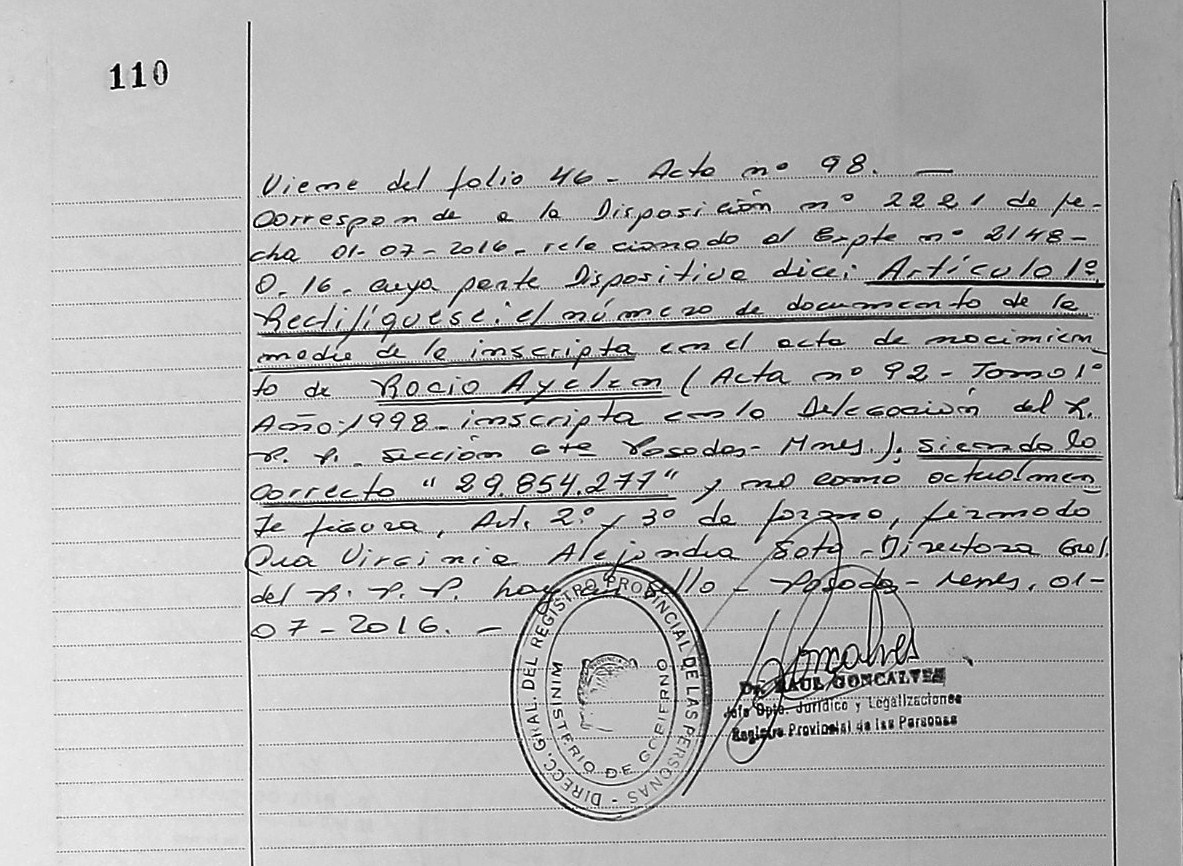 110
Viene del folio 46 - Acta nº 98. —
Corresponde a la Disposición nº 2221 de fe-
cha 01-07-2016 - relacionado al Expte nº 2148-
O-16 - cuya parte Dispositiva dice: Artículo 1º
Rectifíquese: el número de documento de la
madre de la inscripta en el acta de nacimien
to de Rocio Ayelen (Acta nº 92 - Tomo 1º
Año: 1998 - inscripta en la Delegación del R.
P. P. Sección 6ta Posadas - Mnes), siendo lo
correcto "29.854.277" y no como actualmen
te figura, Art. 2º y 3º de forma, firmado
Dra Virginia Alejandra Soto - Directora Gral.
del R. P. P. hay un sello - Posadas - Mnes, 01-
07-2016. —
DIRECC. GRAL. DEL REGISTRO PROVINCIAL DE LAS PERSONAS -
MINISTERIO DE GOBIERNO
Goncalves
Dr. RAUL GONCALVES
Jefe Dpto. Jurídico y Legalizaciones
Registro Provincial de las Personas